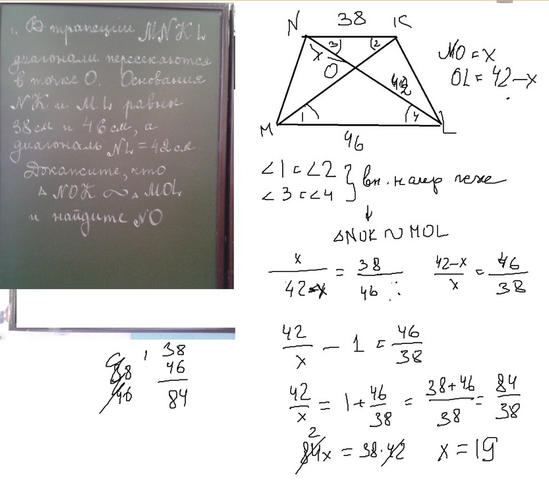 1. В трапеции MNKL
диагонали пересекаются
в точке O. Основания
NK и ML равны
38см и 46см, а
диагональ NL=42см.
Докажите, что
△NOK ∼ △MOL
и найдите NO
N 38 K
x 3 2
O 42
M 1 4 L
46
NO = x
OL = 42-x
∠1 = ∠2
∠3 = ∠4 } вн. накр лежа
↓
△NOK ∼ MOL
x/(42-x) = 38/46 (42-x)/x = 46/38
42/x - 1 = 46/38
42/x = 1 + 46/38 = (38+46)/38 = 84/38
2
84x = 38·42 x = 19
1 38
46
84